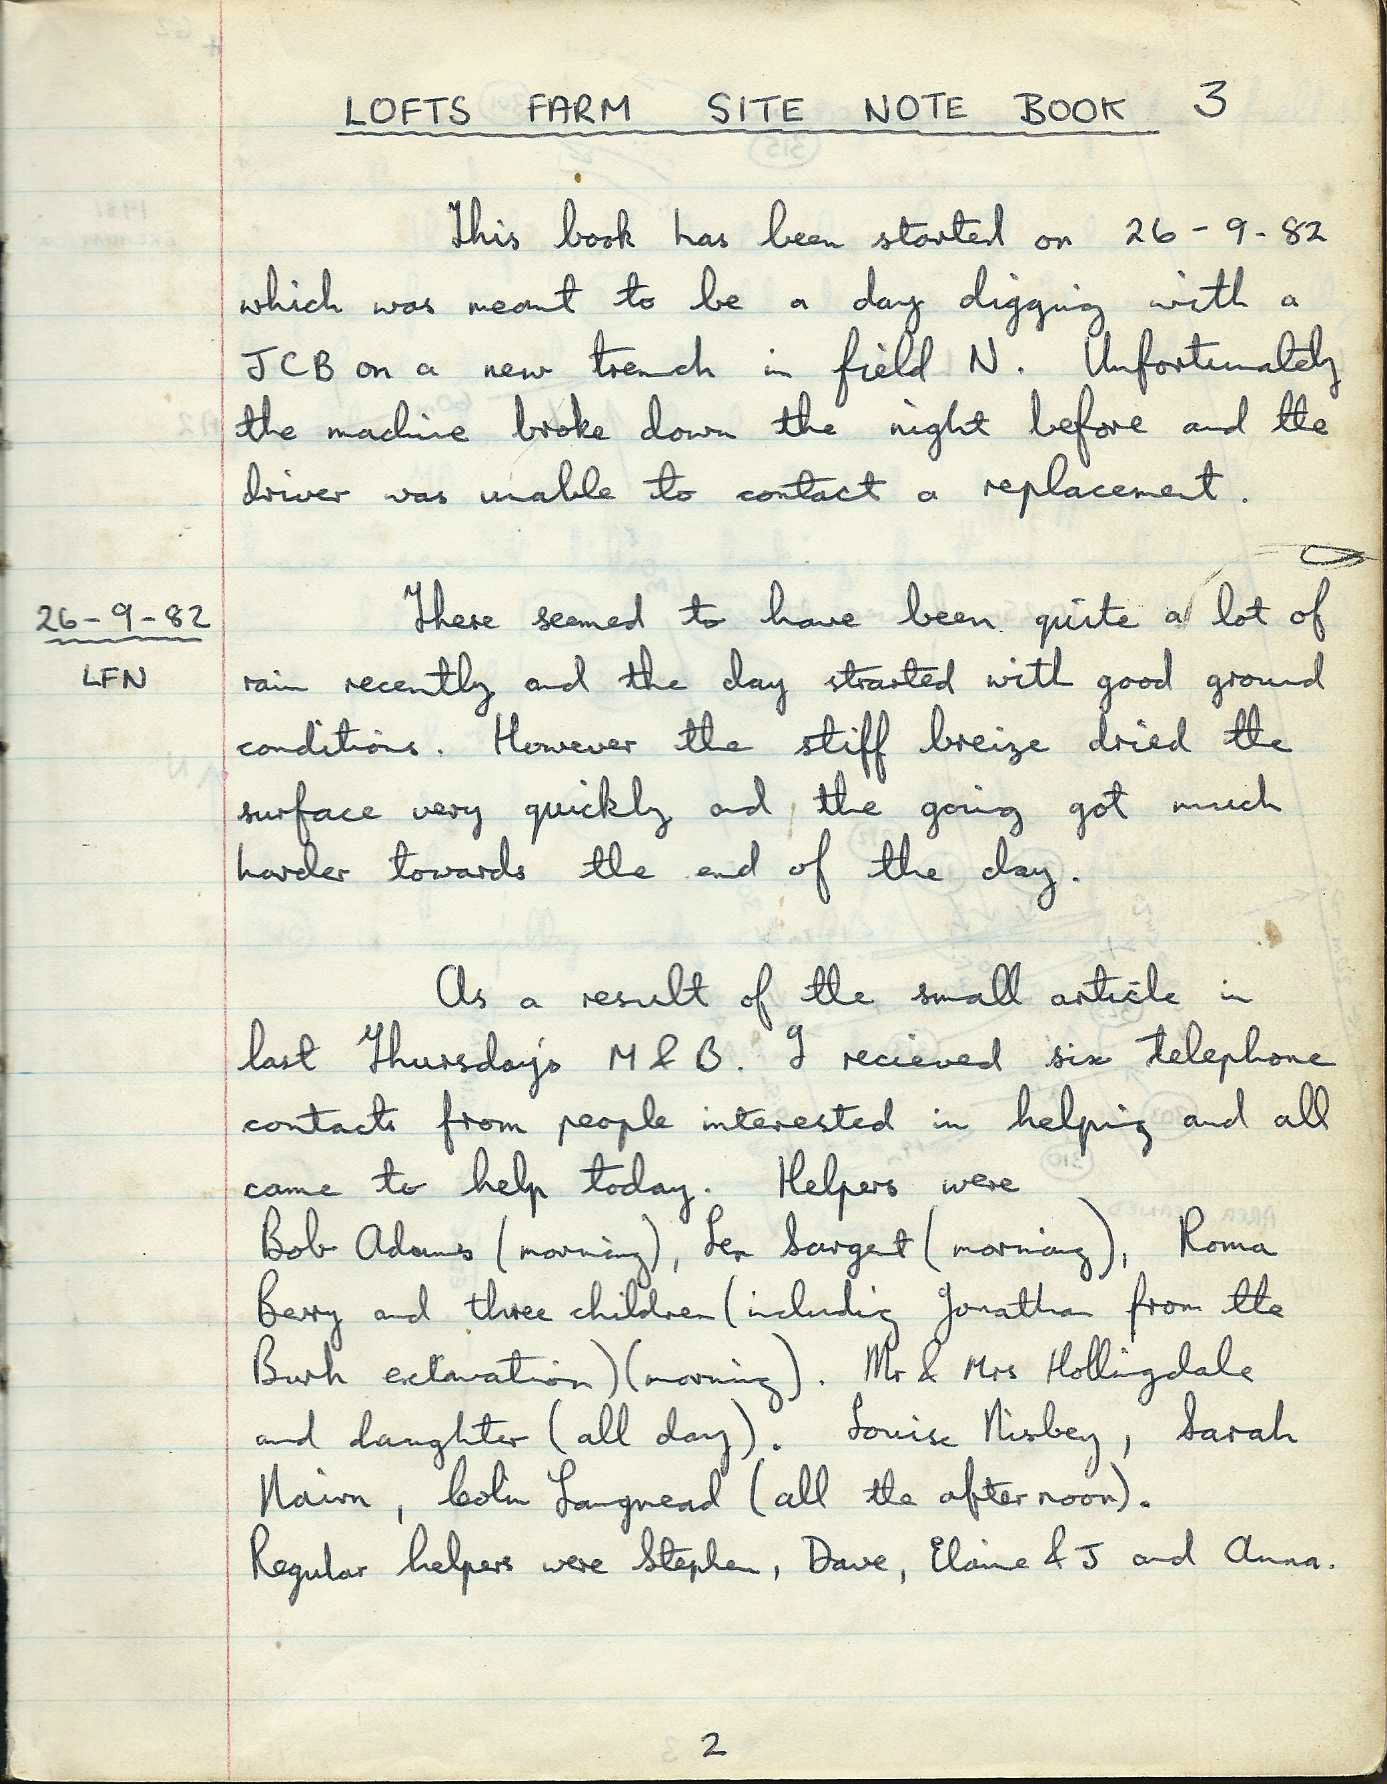 LOFTS FARM SITE NOTE BOOK 3
This book has been started on 26-9-82
which was meant to be a day digging with a
JCB on a new trench in field N. Unfortunately
the machine broke down the night before and the
driver was unable to contact a replacement.
26-9-82
LFN
There seemed to have been quite a lot of
rain recently and the day strarted with good ground
conditions. However the stiff breize dried the
surface very quickly and the going got much
harder towards the end of the day.
As a result of the small article in
last Thursday's M & B. I recieved six telephone
contacts from people interested in helping and all
came to help today. Helpers were
Bob Adams (morning), Len Sargent (morning), Roma
Berry and three children (including Jonathan from the
Burh excavation) (morning). Mr & Mrs Hollingdale
and daughter (all day). Louise Nisbey, Sarah
Nairn, Colin Langmead (all the afternoon).
Regular helpers were Stephen, Dave, Elaine & J and Anna.
2